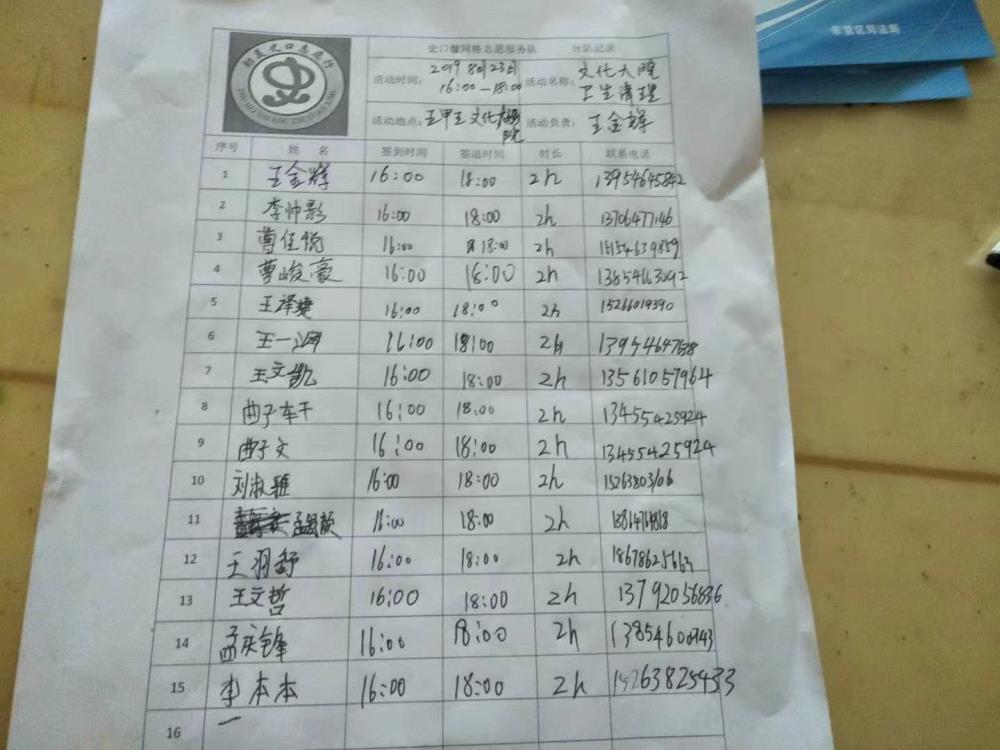 东营区司法局
史口馨网格志愿服务队 分队记录
活动时间: 2019 8月23日 16:00—18:00 活动名称: 文化大院 卫生清理
活动地点: 王甲王文化大院 活动负责: 王金辉
序号 姓名 签到时间 签退时间 时长 联系电话
1 王金辉 16:00 18:00 2h 13954645842
2 李帅影 16:00 18:00 2h 13706477146
3 曹佳悦 16:00 18:00 2h
4 曹峻豪 16:00 18:00 2h 13854663092
5 16:00 18:00 2h 15266019390
6 王一 16:00 18:00 2h
7 王文凯 16:00 18:00 2h 13561057964
8 曲子车干 16:00 18:00 2h 13455425924
9 曲子文 16:00 18:00 2h 13455425924
10 刘淑雅 16:00 18:00 2h 15263803106
11 16:00 18:00 2h
12 王羽舒 16:00 18:00 2h 18678625663
13 王文哲 16:00 18:00 2h 13792056836
14 孟庆锋 16:00 18:00 2h 13854600943
15 李本本 16:00 18:00 2h 15263825433
16